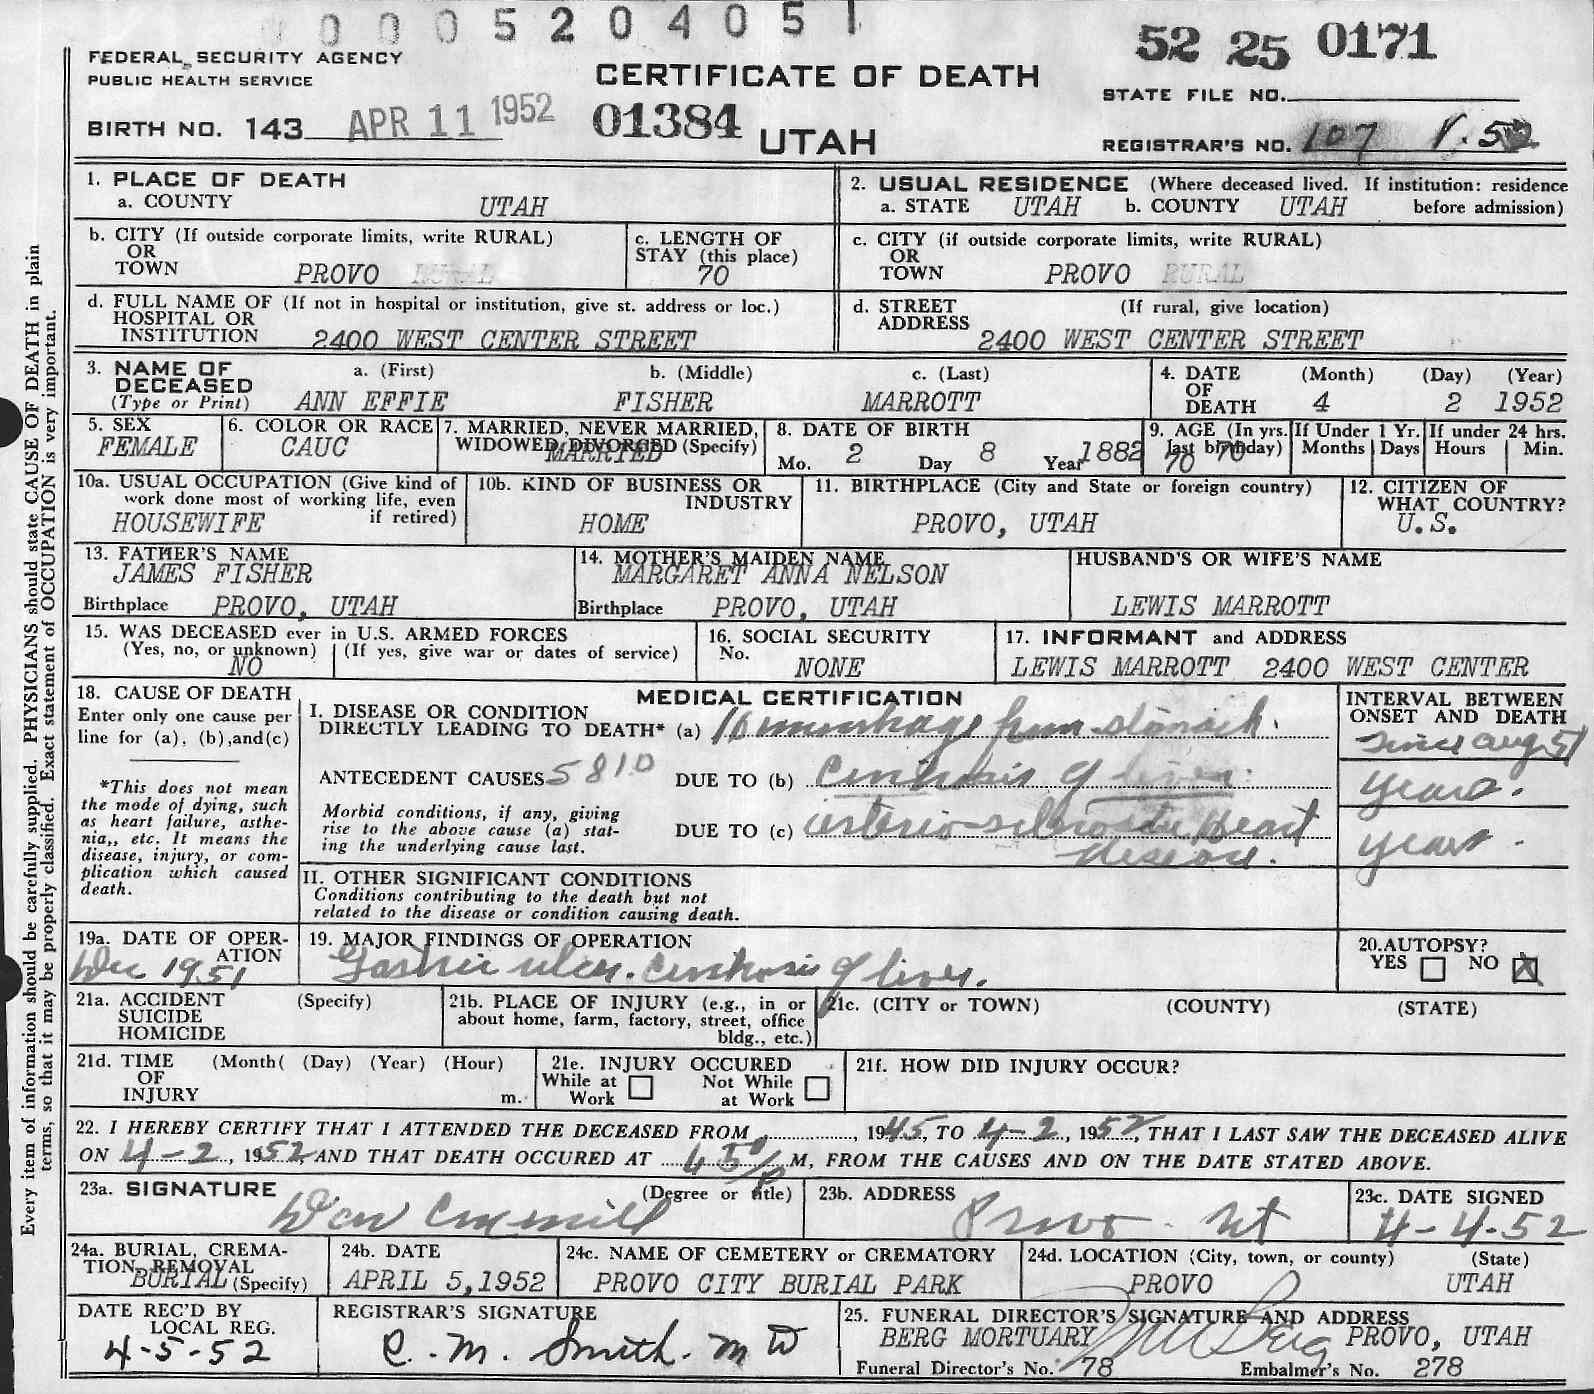 0005204051
52 25 0171
FEDERAL SECURITY AGENCY
PUBLIC HEALTH SERVICE
CERTIFICATE OF DEATH
STATE FILE NO.
BIRTH NO. 143 APR 11 1952
01384 UTAH
REGISTRAR'S NO. 107 V.52
1. PLACE OF DEATH
a. COUNTY UTAH
2. USUAL RESIDENCE (Where deceased lived. If institution: residence before admission)
a. STATE UTAH b. COUNTY UTAH
b. CITY (If outside corporate limits, write RURAL)
OR
TOWN PROVO RURAL
c. LENGTH OF
STAY (this place)
70
c. CITY (if outside corporate limits, write RURAL)
OR
TOWN PROVO RURAL
d. FULL NAME OF (If not in hospital or institution, give st. address or loc.)
HOSPITAL OR
INSTITUTION 2400 WEST CENTER STREET
d. STREET (If rural, give location)
ADDRESS 2400 WEST CENTER STREET
3. NAME OF a. (First) b. (Middle) c. (Last)
DECEASED
(Type or Print) ANN EFFIE FISHER MARROTT
4. DATE (Month) (Day) (Year)
OF
DEATH 4 2 1952
5. SEX
FEMALE
6. COLOR OR RACE
CAUC
7. MARRIED, NEVER MARRIED,
WIDOWED, DIVORCED (Specify)
MARRIED
8. DATE OF BIRTH
Mo. 2 Day 8 Year 1882
9. AGE (In yrs. last birthday)
70 70
If Under 1 Yr.
Months Days
If under 24 hrs.
Hours Min.
10a. USUAL OCCUPATION (Give kind of
work done most of working life, even
if retired)
HOUSEWIFE
10b. KIND OF BUSINESS OR
INDUSTRY
HOME
11. BIRTHPLACE (City and State or foreign country)
PROVO, UTAH
12. CITIZEN OF
WHAT COUNTRY?
U.S.
13. FATHER'S NAME
JAMES FISHER
Birthplace PROVO, UTAH
14. MOTHER'S MAIDEN NAME
MARGARET ANNA NELSON
Birthplace PROVO, UTAH
HUSBAND'S OR WIFE'S NAME
LEWIS MARROTT
15. WAS DECEASED ever in U.S. ARMED FORCES
(Yes, no, or unknown) (If yes, give war or dates of service)
NO
16. SOCIAL SECURITY
No.
NONE
17. INFORMANT and ADDRESS
LEWIS MARROTT 2400 WEST CENTER
18. CAUSE OF DEATH
Enter only one cause per
line for (a), (b), and(c)
*This does not mean
the mode of dying, such
as heart failure, asthe-
nia,, etc. It means the
disease, injury, or com-
plication which caused
death.
MEDICAL CERTIFICATION
I. DISEASE OR CONDITION
DIRECTLY LEADING TO DEATH* (a) Hemorrhage from stomach.
ANTECEDENT CAUSES 5810 DUE TO (b) Cirrhosis of liver.
Morbid conditions, if any, giving
rise to the above cause (a) stat-
ing the underlying cause last.
DUE TO (c) arterio-sclerotic heart
disease.
INTERVAL BETWEEN
ONSET AND DEATH
since aug 51
years.
years.
II. OTHER SIGNIFICANT CONDITIONS
Conditions contributing to the death but not
related to the disease or condition causing death.
19a. DATE OF OPER-
ATION
Dec 1951
19. MAJOR FINDINGS OF OPERATION
Gastric ulcer. Cirrhosis of liver.
20.AUTOPSY?
YES NO X
21a. ACCIDENT (Specify)
SUICIDE
HOMICIDE
21b. PLACE OF INJURY (e.g., in or
about home, farm, factory, street, office
bldg., etc.)
21c. (CITY or TOWN) (COUNTY) (STATE)
21d. TIME (Month( (Day) (Year) (Hour)
OF
INJURY m.
21e. INJURY OCCURED
While at Work Not While at Work
21f. HOW DID INJURY OCCUR?
22. I HEREBY CERTIFY THAT I ATTENDED THE DECEASED FROM , 1945, TO 4-2, 1952, THAT I LAST SAW THE DECEASED ALIVE
ON 4-2, 1952, AND THAT DEATH OCCURED AT 4 50 P M, FROM THE CAUSES AND ON THE DATE STATED ABOVE.
23a. SIGNATURE (Degree or title)
23b. ADDRESS
Provo - Ut
23c. DATE SIGNED
4-4-52
24a. BURIAL, CREMA-
TION, REMOVAL
BURIAL (Specify)
24b. DATE
APRIL 5, 1952
24c. NAME OF CEMETERY or CREMATORY
PROVO CITY BURIAL PARK
24d. LOCATION (City, town, or county) (State)
PROVO UTAH
DATE REC'D BY
LOCAL REG.
4-5-52
REGISTRAR'S SIGNATURE
C. M. Smith. MD
25. FUNERAL DIRECTOR'S SIGNATURE AND ADDRESS
BERG MORTUARY Berg PROVO, UTAH
Funeral Director's No. 78 Embalmer's No. 278
Every item of information should be carefully supplied. PHYSICIANS should state CAUSE OF DEATH in plain
terms, so that it may be properly classified. Exact statement of OCCUPATION is very important.